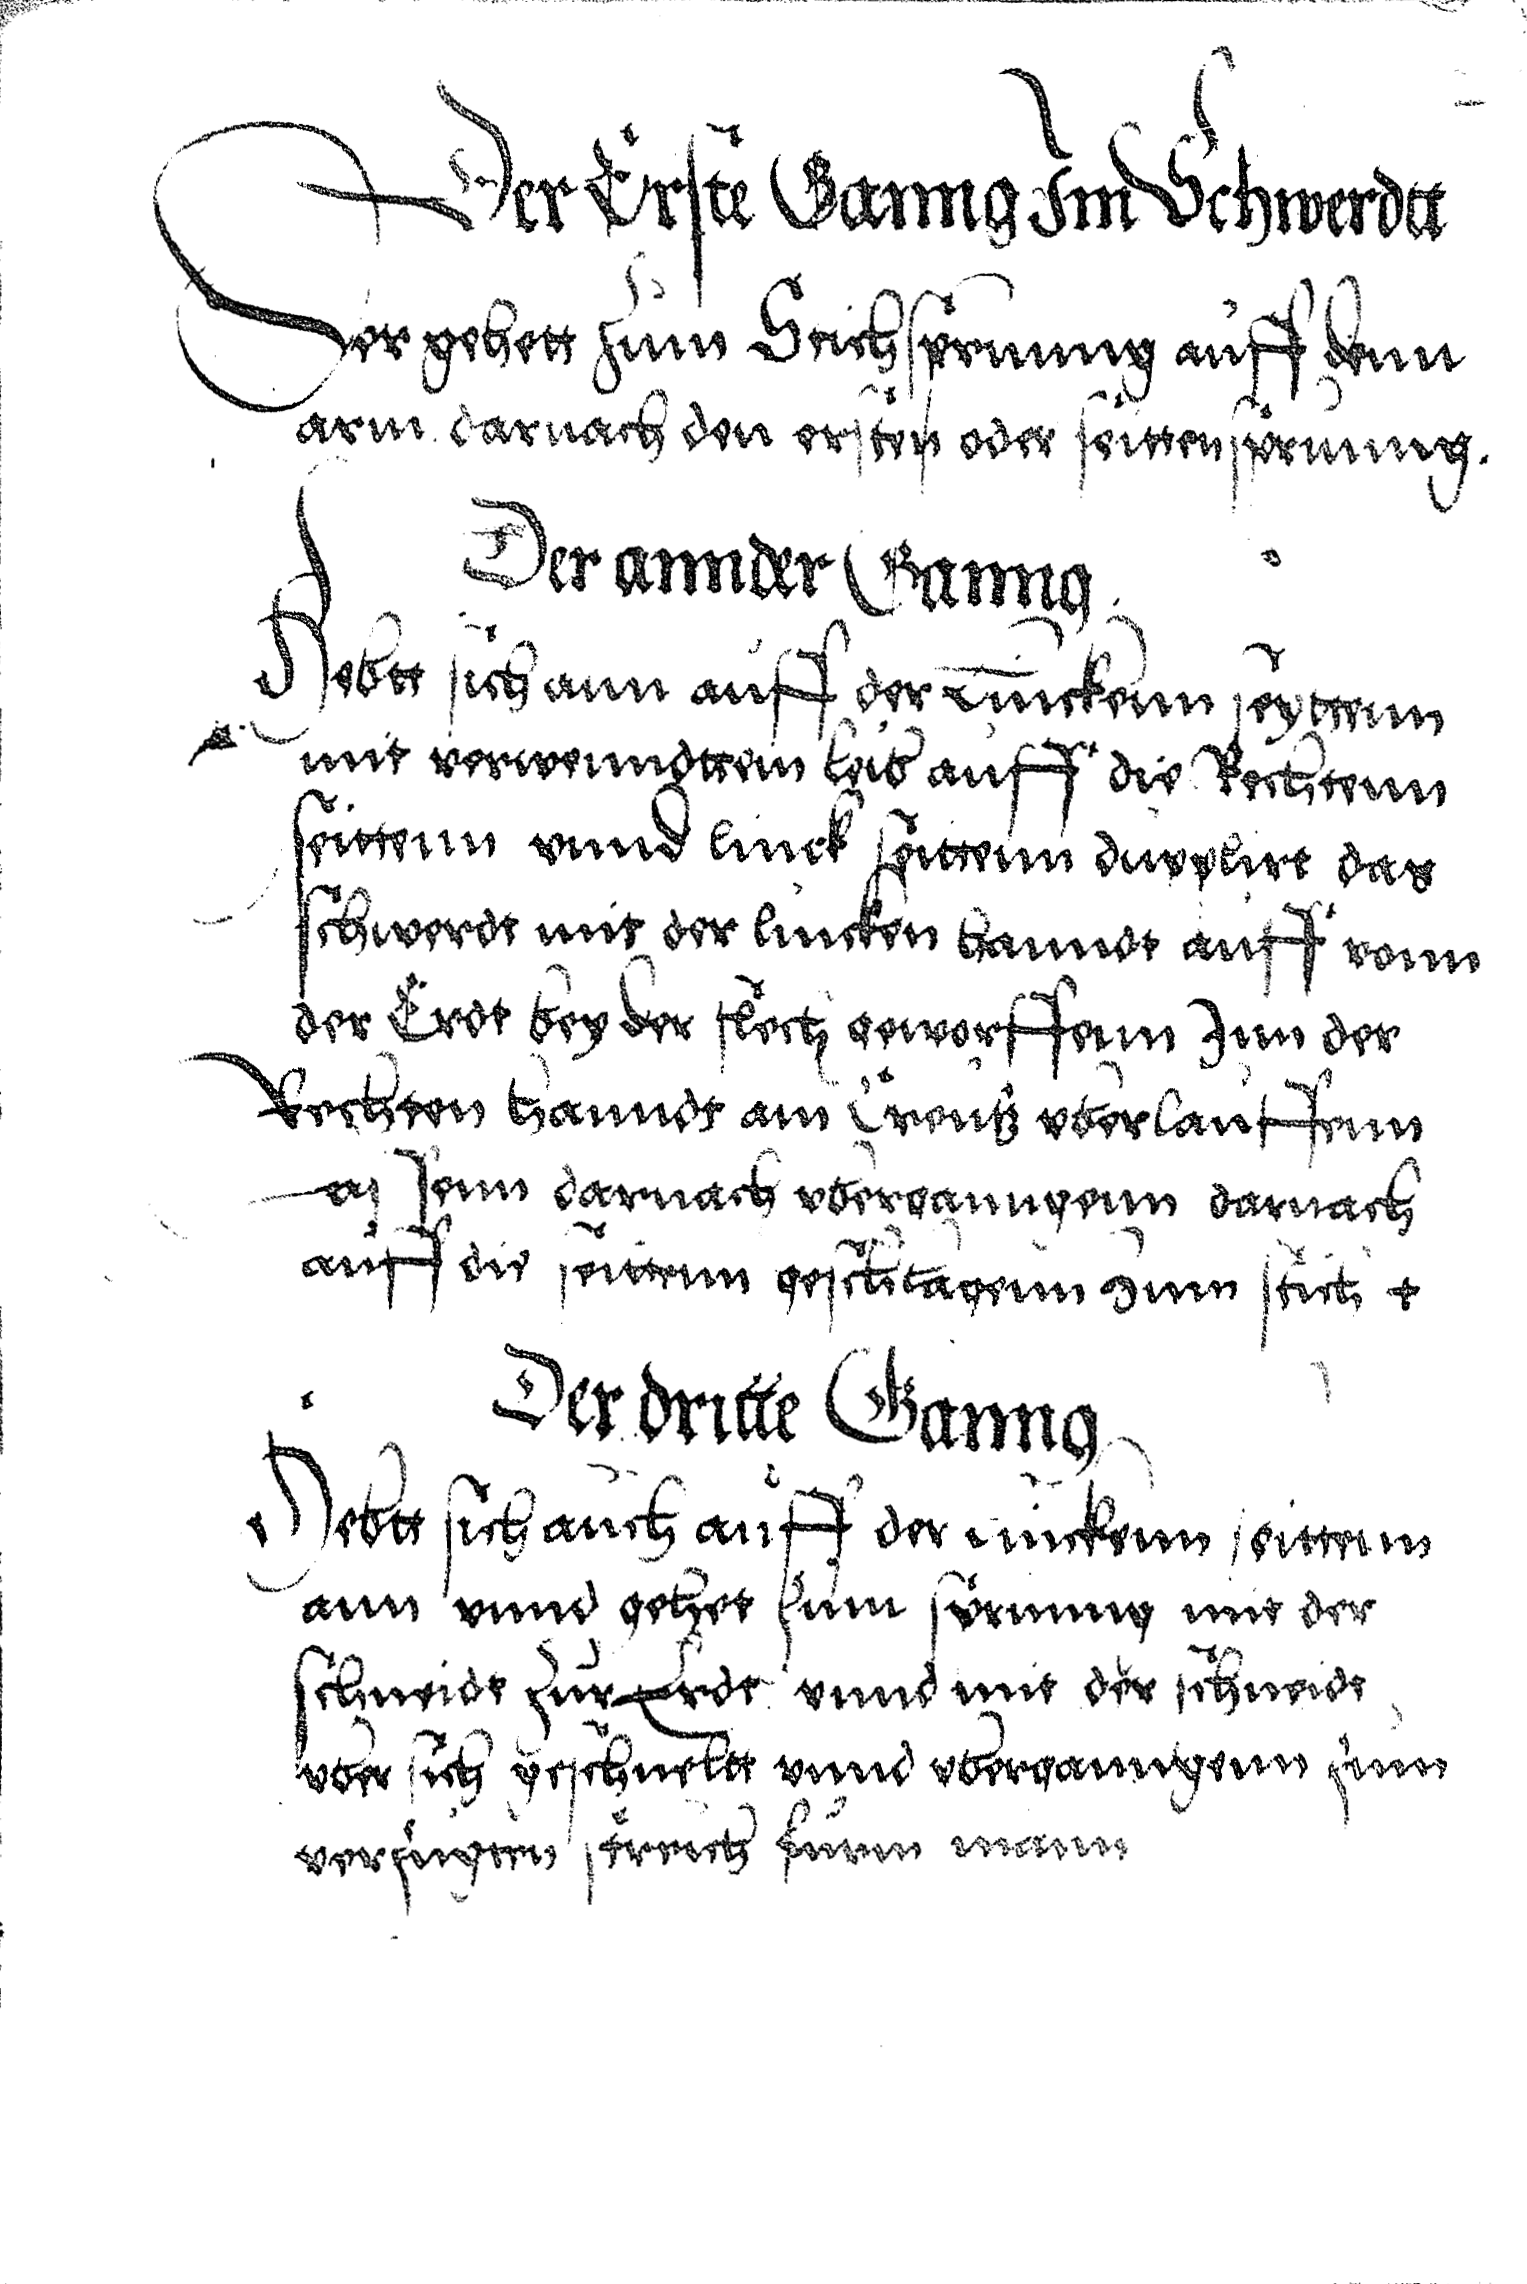 Der Erste Ganng Im Schwerdtt
Der gehett zum Seichsprunng auff denn
arm darnach den ersten oder seittensprunng.
Der annder Ganng
Hebtt sich ann auff der Linckenn seyttenn
mit verwenndttem leib auff die Rechtenn
seittenn vnnd linck seittenn dupplirt das
schwerdt mit der lincken hanndt auff vonn
der Erdt bey der flech geworffenn Inn der
Rechten hanndt am Creutz vberlauffenn
darnach vberganngenn darnach
auff die seittenn geschlagenn Zum stich
Der dritte Ganng
Hebtt sich auch auff der Linckenn seittenn
ann vnnd gehet zum sprunng mit der
schneidt zur Erdt vnnd mit der schneidt
vber sich geschneltt vnnd vberganngenn zum
streich fürnn mann